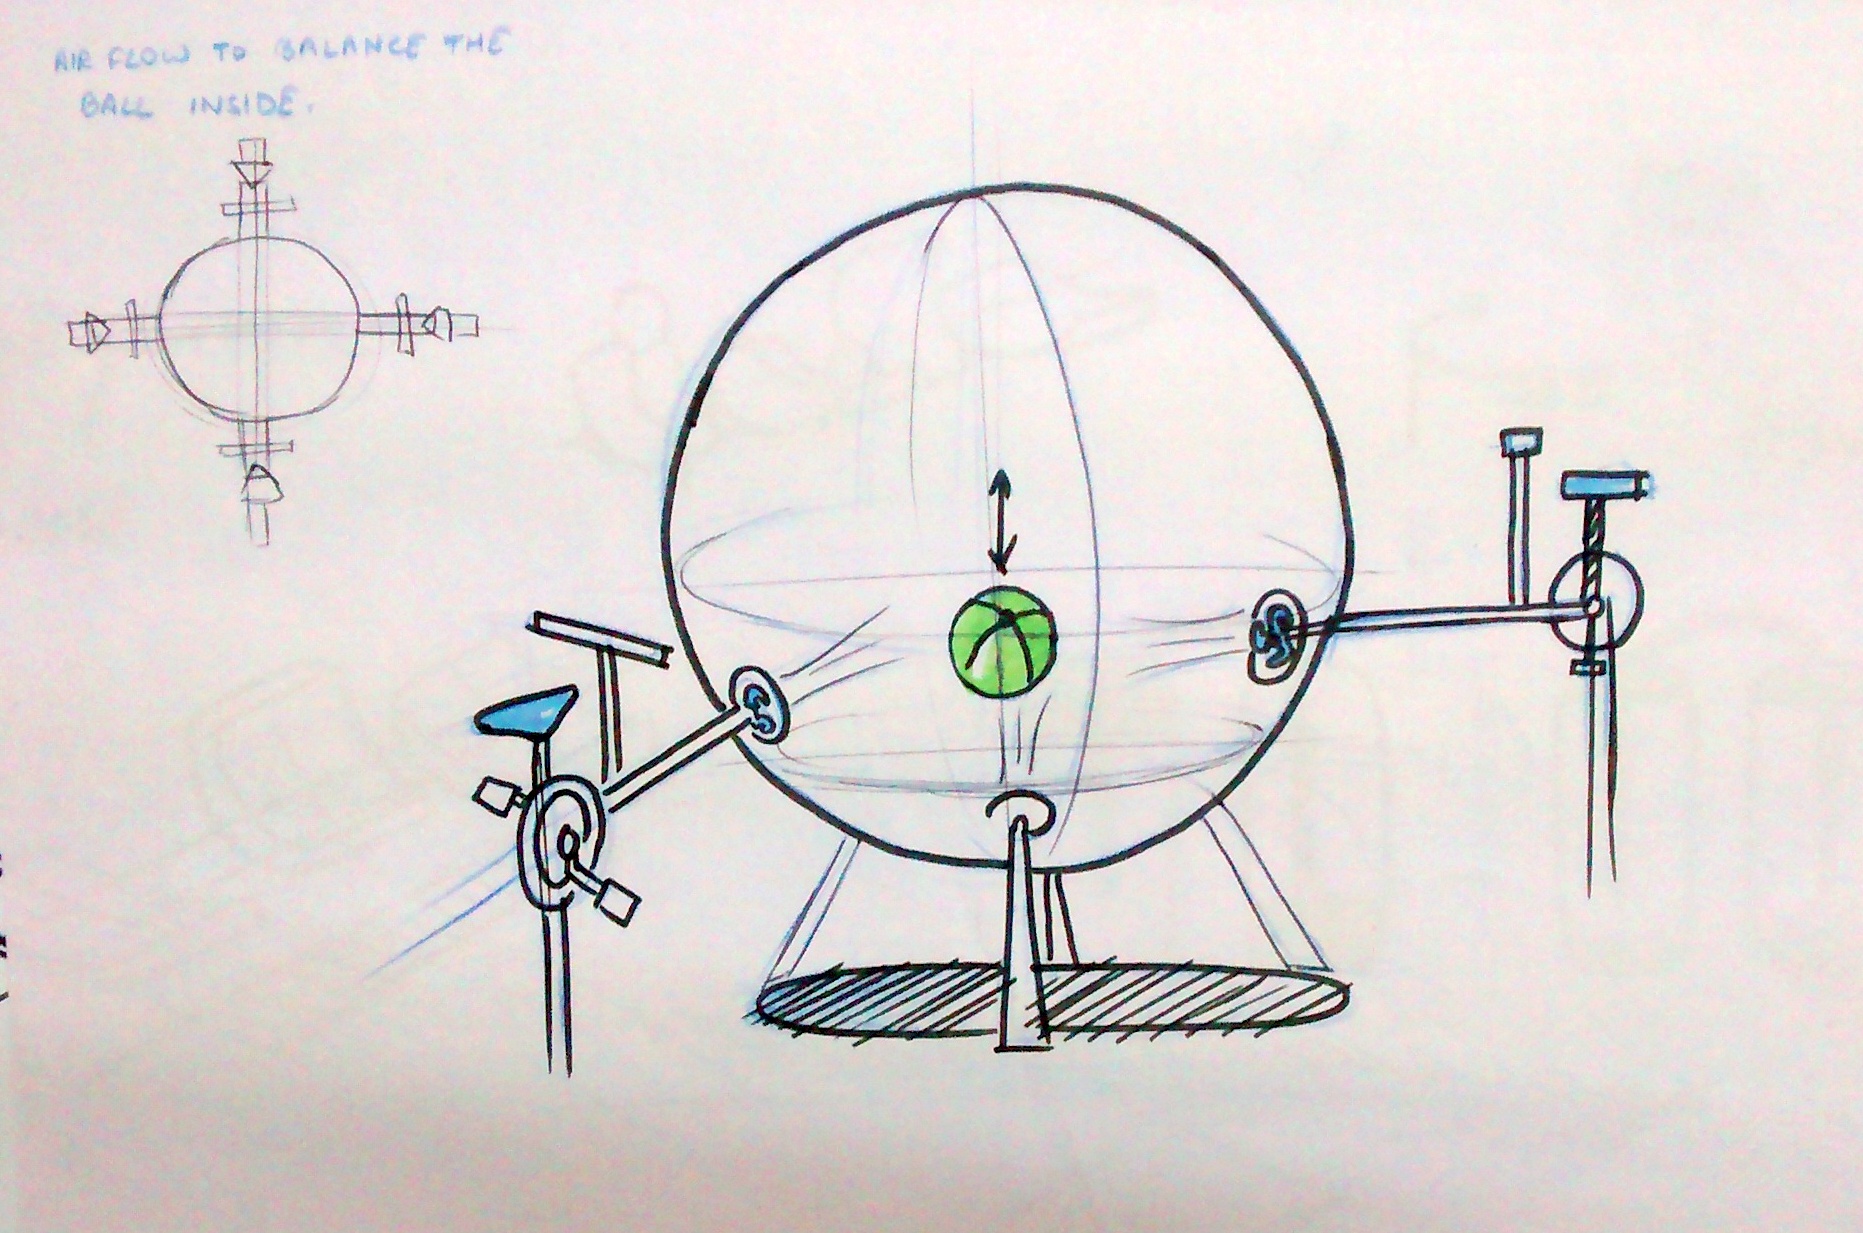 AIR FLOW TO BALANCE THE
BALL INSIDE.